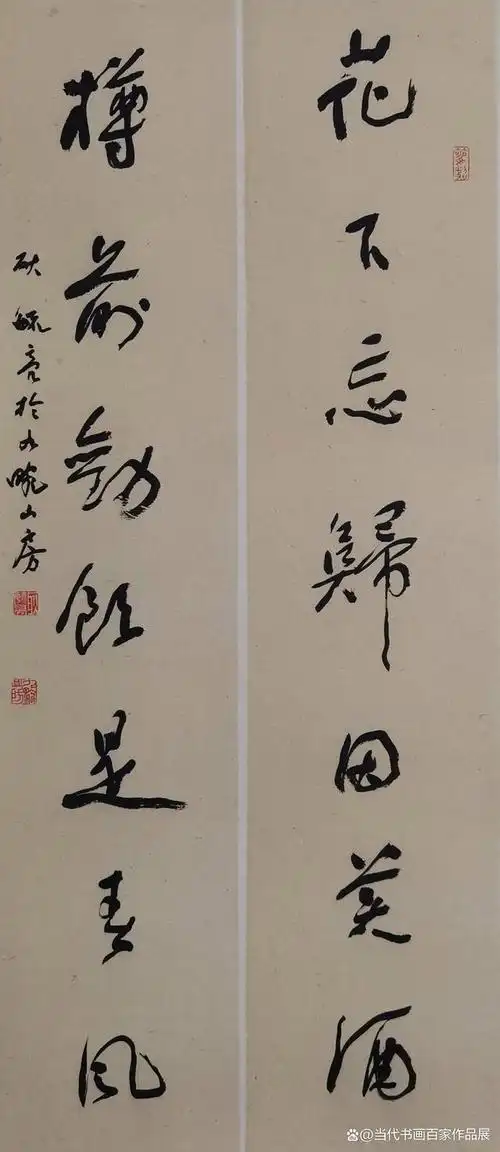 花下忘歸因美酒
樽前勸飲是春風
耿毓亮於九畹山房
@当代书画百家作品展